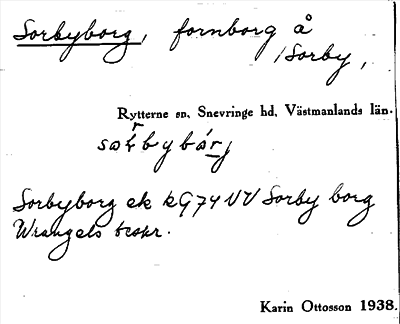 Sorbyborg, fornborg å
/Sorby,
Rytterne sn, Snevringe hd, Västmanlands län.
Sorbyborg ek kG74 VV Sorby borg
Wrangels beskr.
Karin Ottosson 1938.